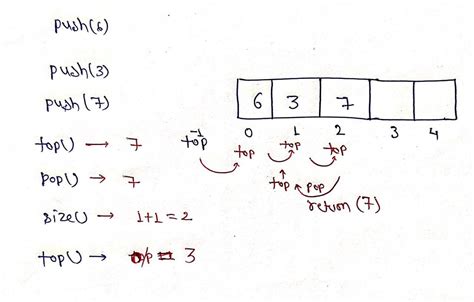 push(6)
push(3)
push(7)
6 3 7
0 1 2 3 4
top() → 7
-1
top
top
top
top
pop() → 7
top
pop
return (7)
size() → 1+1=2
top() → 3